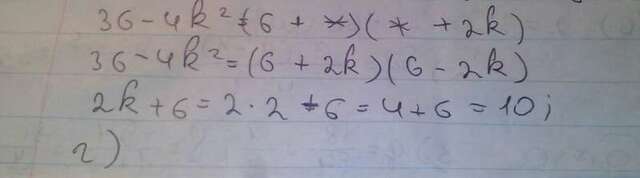 36 - 4k² = (6 + *)(* + 2k)
36 - 4k² = (6 + 2k)(6 - 2k)
2k + 6 = 2 · 2 + 6 = 4 + 6 = 10;
г)